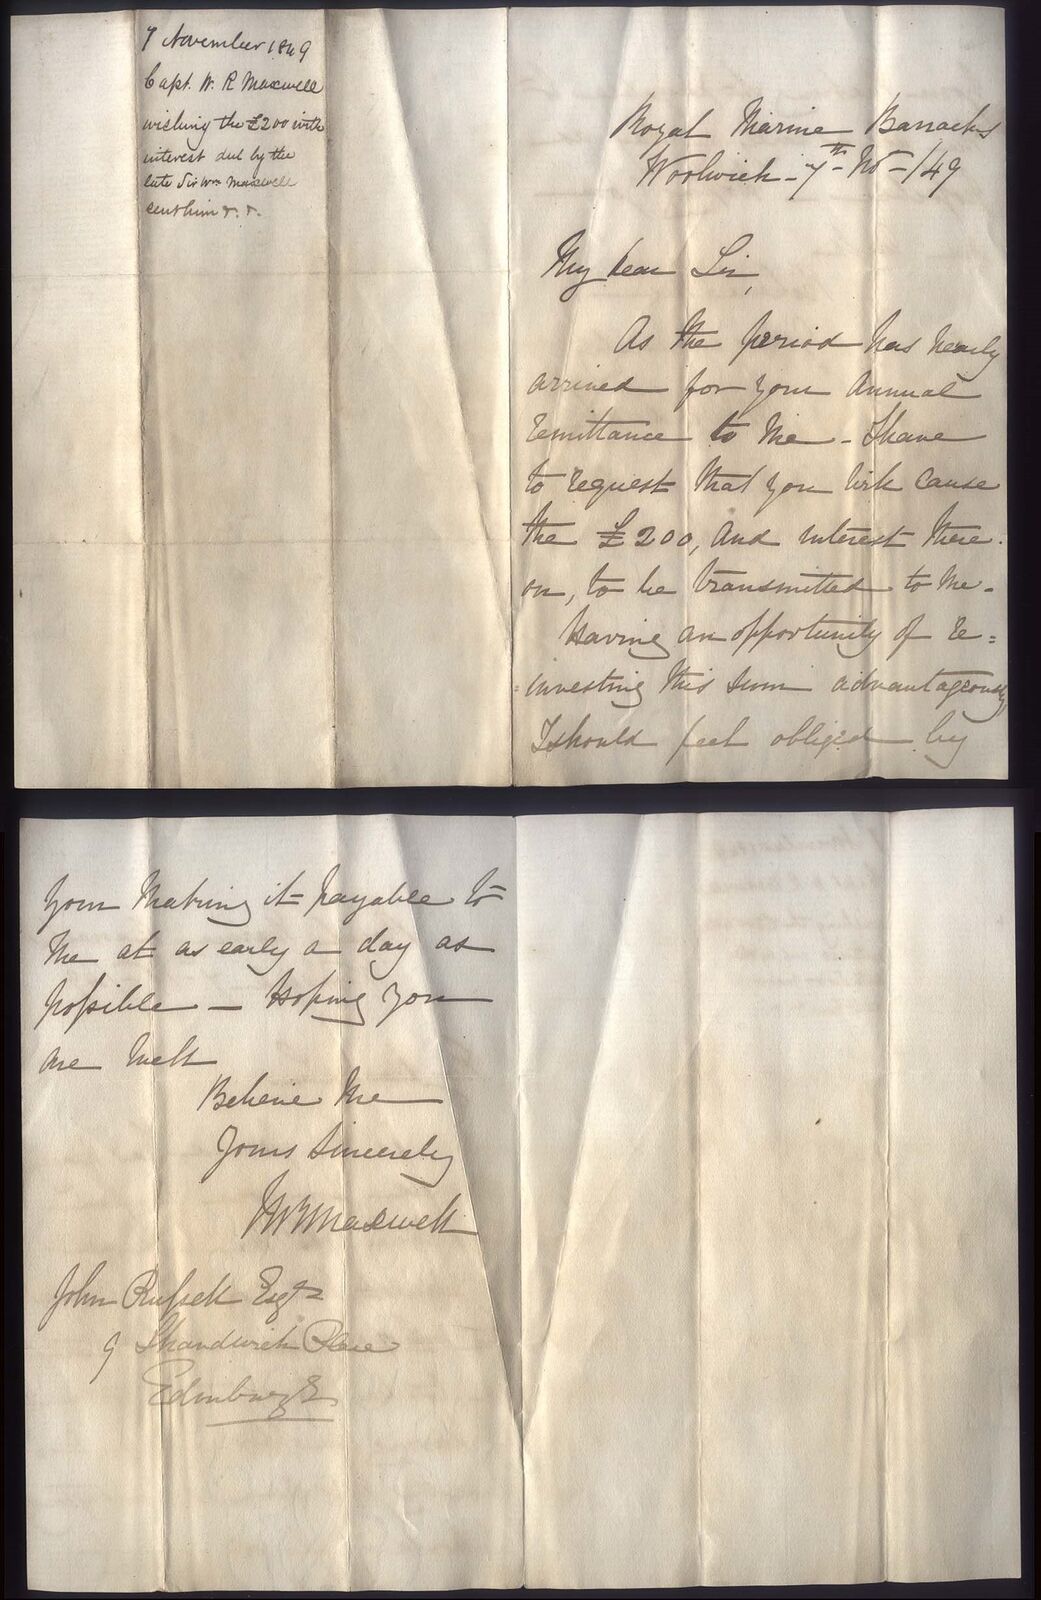 7 November 1849
Capt. W. R Maxwell
wishing the £200 with
interest due by the
late Sir Wm Maxwell
sent him &. &.
Royal Marine Barracks
Woolwich - 7th - No - /49
My dear Sir,
As the period has nearly
arrived for your annual
remittance to me - I have
to request that you will cause
the £200, and interest there-
on, to be transmitted to me -
Having an opportunity of re=
=investing this sum advantageously,
I should feel obliged by
your making it payable to
me at as early a day as
possible - Hoping you
are well
Believe me
Yours sincerely
WRMaxwell
John Russell Esqre
9 Shandwick Place
Edinburgh